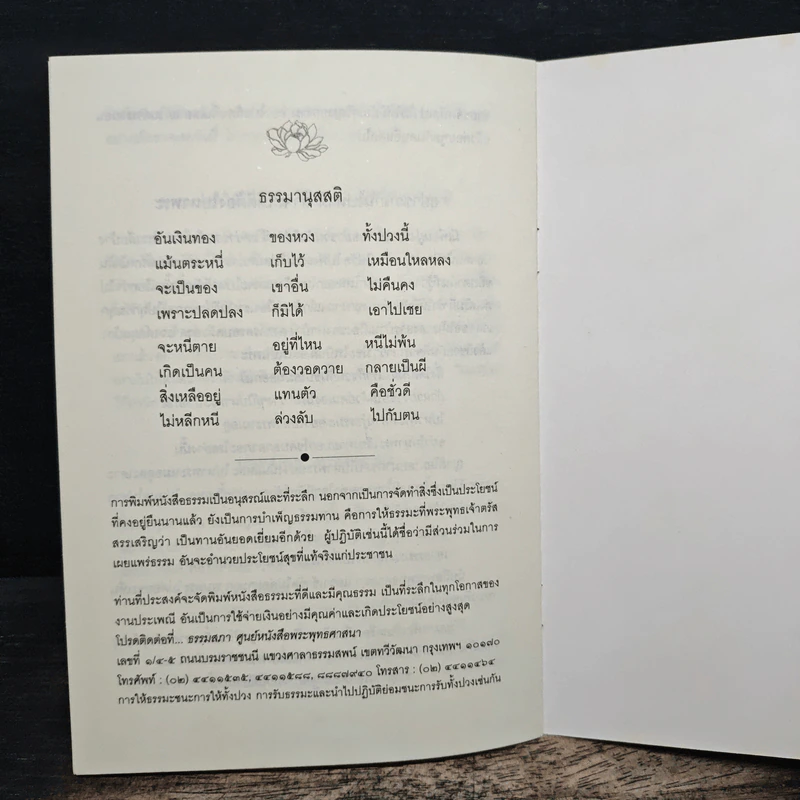 ธรรมานุสสติ
อันเงินทอง ของหวง ทั้งปวงนี้
แม้นตระหนี่ เก็บไว้ เหมือนใหลหลง
จะเป็นของ เขาอื่น ไม่คืนคง
เพราะปลดปลง ก็มิได้ เอาไปเชย
จะหนีตาย อยู่ที่ไหน หนีไม่พ้น
เกิดเป็นคน ต้องวอดวาย กลายเป็นผี
สิ่งเหลืออยู่ แทนตัว คือชั่วดี
ไม่หลีกหนี ล่วงลับ ไปกับตน
การพิมพ์หนังสือธรรมเป็นอนุสรณ์และที่ระลึก นอกจากเป็นการจัดทำสิ่งซึ่งเป็นประโยชน์
ที่คงอยู่ยืนนานแล้ว ยังเป็นการบำเพ็ญธรรมทาน คือการให้ธรรมะที่พระพุทธเจ้าตรัส
สรรเสริญว่า เป็นทานอันยอดเยี่ยมอีกด้วย ผู้ปฏิบัติเช่นนี้ได้ชื่อว่ามีส่วนร่วมในการ
เผยแพร่ธรรม อันจะอำนวยประโยชน์สุขที่แท้จริงแก่ประชาชน
ท่านที่ประสงค์จะจัดพิมพ์หนังสือธรรมะที่ดีและมีคุณธรรม เป็นที่ระลึกในทุกโอกาสของ
งานประเพณี อันเป็นการใช้จ่ายเงินอย่างมีคุณค่าและเกิดประโยชน์อย่างสูงสุด
โปรดติดต่อที่... ธรรมสภา ศูนย์หนังสือพระพุทธศาสนา
เลขที่ ๑/๔-๕ ถนนบรมราชชนนี แขวงศาลาธรรมสพน์ เขตทวีวัฒนา กรุงเทพฯ ๑๐๑๗๐
โทรศัพท์ : (๐๒) ๔๔๑๑๕๓๕, ๔๔๑๑๕๘๘, ๘๘๘๗๙๔๐ โทรสาร : (๐๒) ๔๔๑๑๔๖๔
การให้ธรรมะชนะการให้ทั้งปวง การรับธรรมะและนำไปปฏิบัติย่อมชนะการรับทั้งปวงเช่นกัน